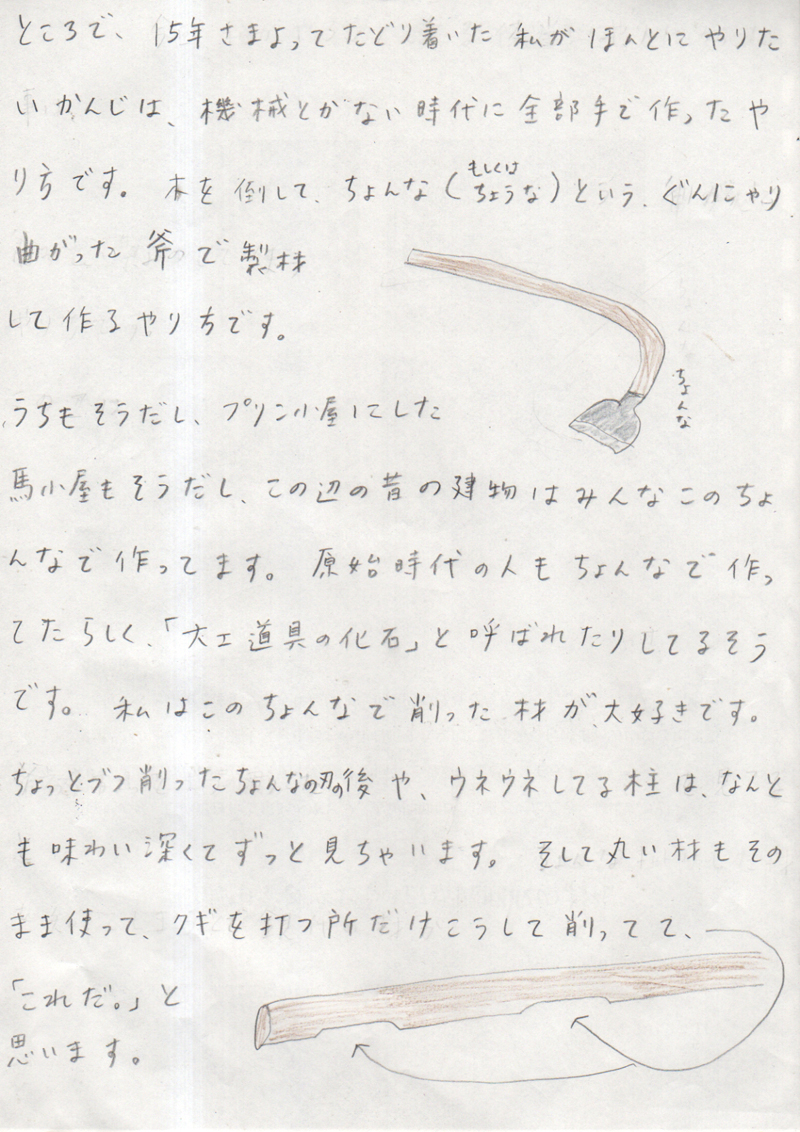 ところで、15年さまよってたどり着いた 私が ほんとに やりた
い かんじは、機械とかない 時代に 全部手で 作ったや
り方です。 木を 倒して、ちょんな(もしくは ちょうな)という、ぐんにゃり
曲がった 斧で 製材
して 作る やり方です。
ちょんな
うちも そうだし、プリン小屋にした
馬小屋も そうだし、この辺の 昔の 建物は みんな このちょ
んなで 作ってます。 原始時代の 人も ちょんなで 作っ
てたらしく、「大工道具の化石」と 呼ばれたりしてるそう
です。 私は この ちょんなで 削った 材が、大好きです。
ちょっとずつ 削ったちょんなの刃の後や、ウネウネしてる 柱は、なんと
も 味わい 深くて ずっと 見ちゃいます。 そして 丸い 材も その
まま 使って、クギを 打つ 所だけ こうして 削ってて、
「これだ。」と
思います。